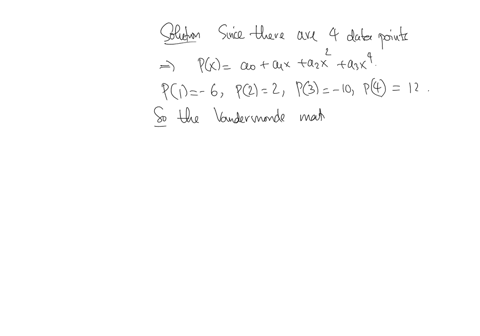 Solution Since there are 4 data points
⇒ P(x) = a₀ + a₁x + a₂x² + a₃x⁴.
P(1) = -6, P(2) = 2, P(3) = -10, P(4) = 12.
So the Vandermonde mat